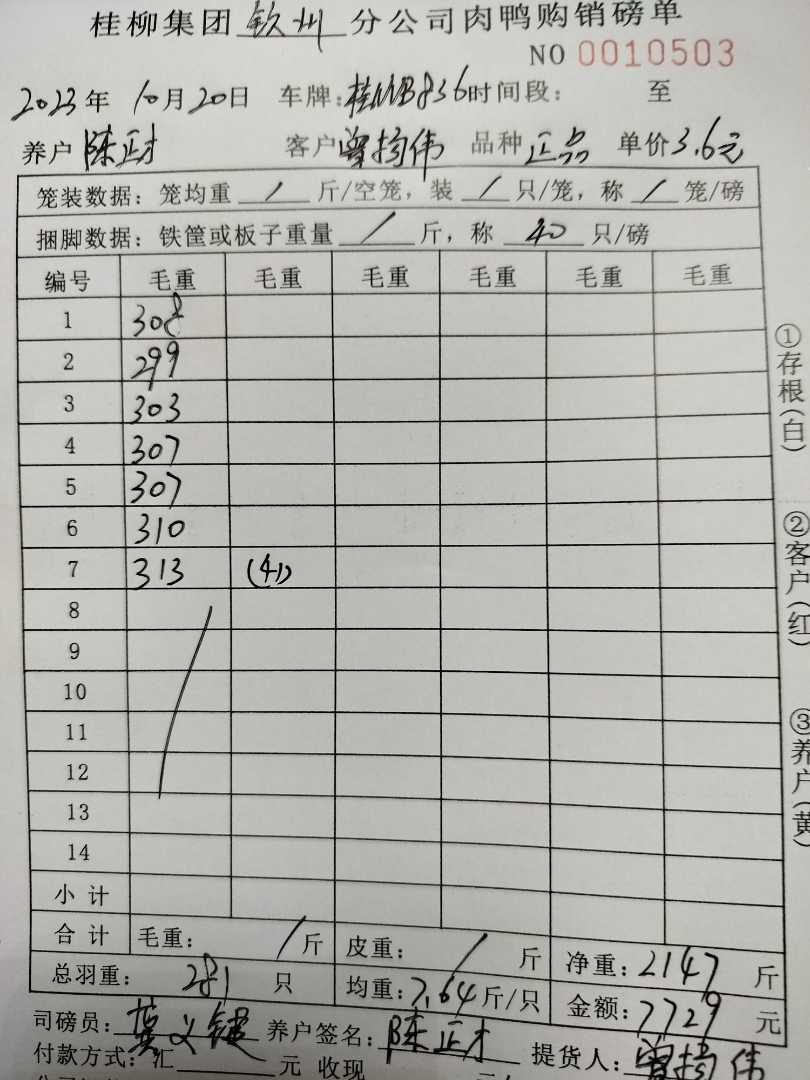 桂柳集团 钦州 分公司肉鸭购销磅单
NO 0010503
2023年 10月20日 车牌:桂MB836 时间段: 至
养户 陈正才 客户 曾搞伟 品种 正品 单价 3.6元
笼装数据: 笼均重 / 斤/空笼, 装 / 只/笼, 称 / 笼/磅
捆脚数据: 铁筐或板子重量 / 斤, 称 40 只/磅
编号 毛重 毛重 毛重 毛重 毛重 毛重
1 308
2 299
3 303
4 307
5 307
6 310
7 313 (41)
8
9
10
11
12
13
14
小计
合计 毛重: / 斤 皮重: / 斤 净重: 2147 斤
总羽重: 281 只 均重: 7.64 斤/只 金额: 7729 元
司磅员: 义键 养户签名: 陈正才 提货人: 曾搞伟
付款方式: 汇 元 收现
①存根(白)
②客户(红)
③养户(黄)